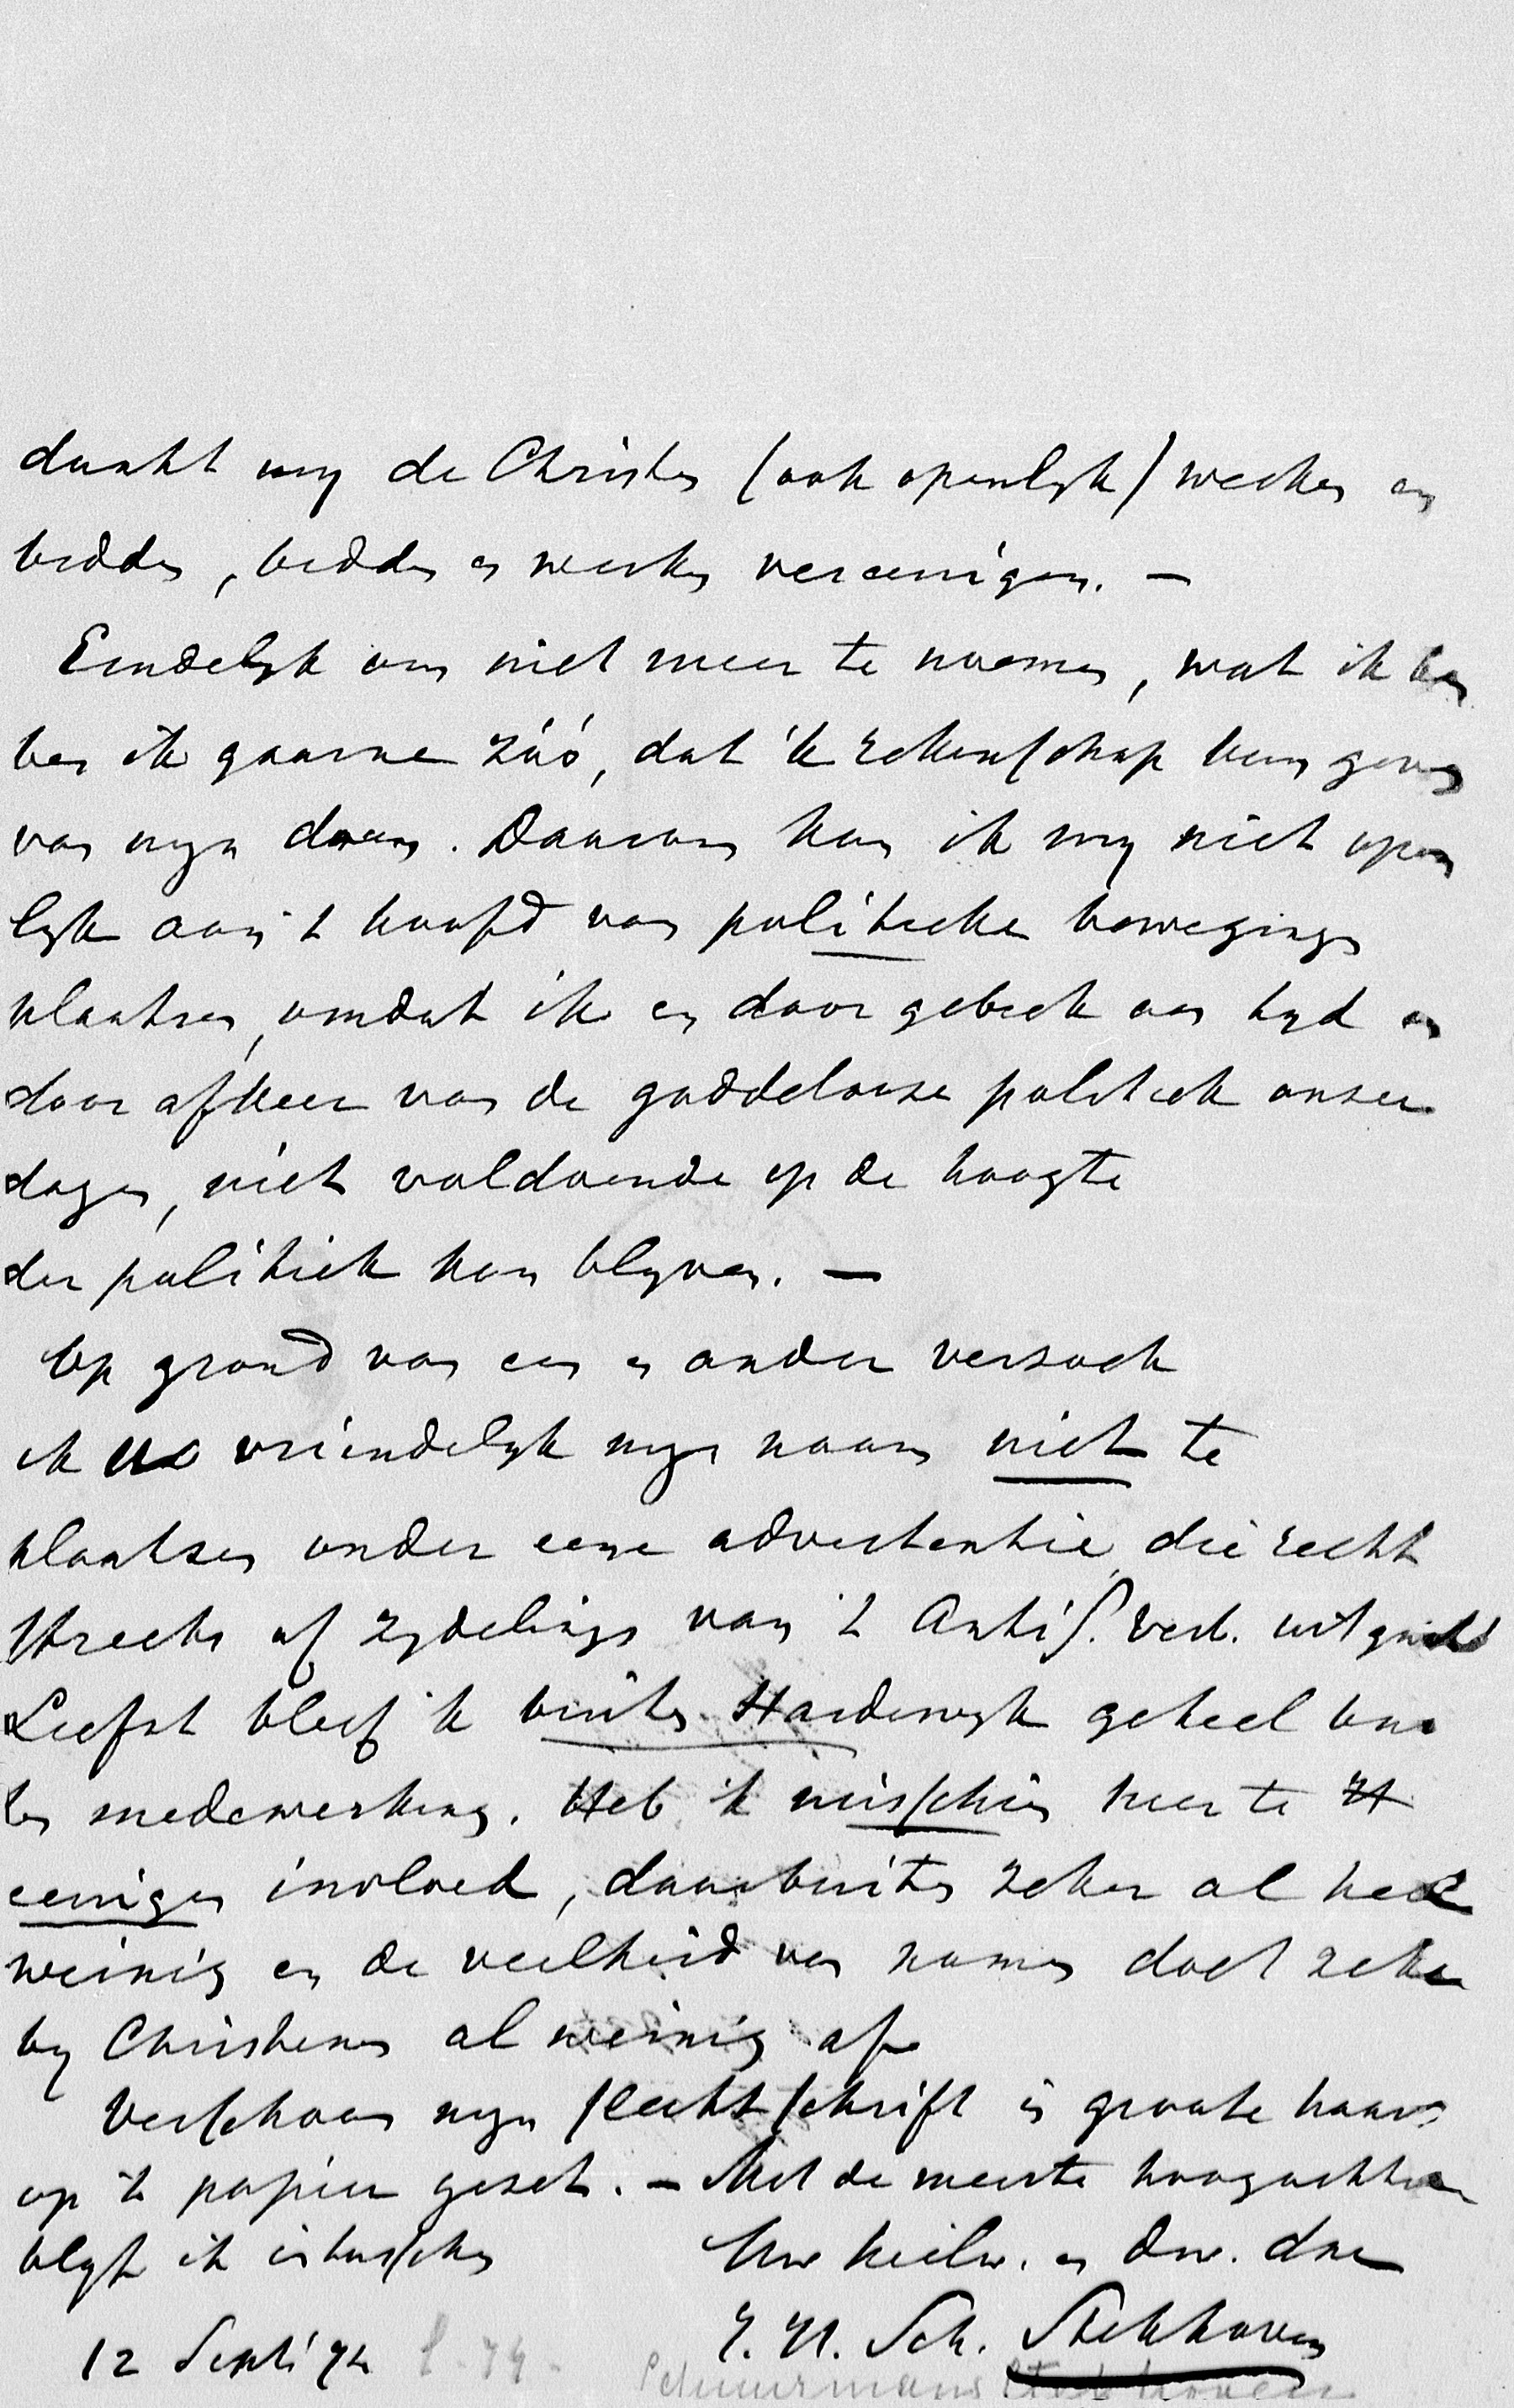 dunkt my de Christen (ook openlyk) werken en
bidden, bidden en werken vereenigen. —
Eindelyk om niet meer te noemen, wat ik ben
ben ik gaarne zóó, dat 'k rekenschap kan geven
van myn doen. Daarom kan ik my niet open
lyk aan 't hoofd van politieke bewegingen
plaatsen, omdat ik en door gebrek aan tyd en
door afkeer van de goddelooze politiek onzer
dagen, niet voldoende op de hoogte
der politiek kan blyven. —
Op grond van een en ander verzoek
ik vriendelyk myn naam niet te
plaatsen onder eene advertentie, die recht
streeks of zydelings van 't Antis. Verb. uitgaat
Liefst bleef 'k buiten Harderwyk geheel bui
ten medewerking. Heb 'k misschien hier te H
eenigen invloed, daarbuiten zeker al heel
weinig en de veelheid van namen doet zeker
by Christenen al weinig af
Verschoon myn slecht schrift in groote haast
op 't papier gezet. — Met de meeste hoogachting
blyf ik intusschen Uw heilw. en dw. dnr
J. H. Sch. Stekhoven
12 Sept. '74 f. 74
Schuurmans Stekhoven